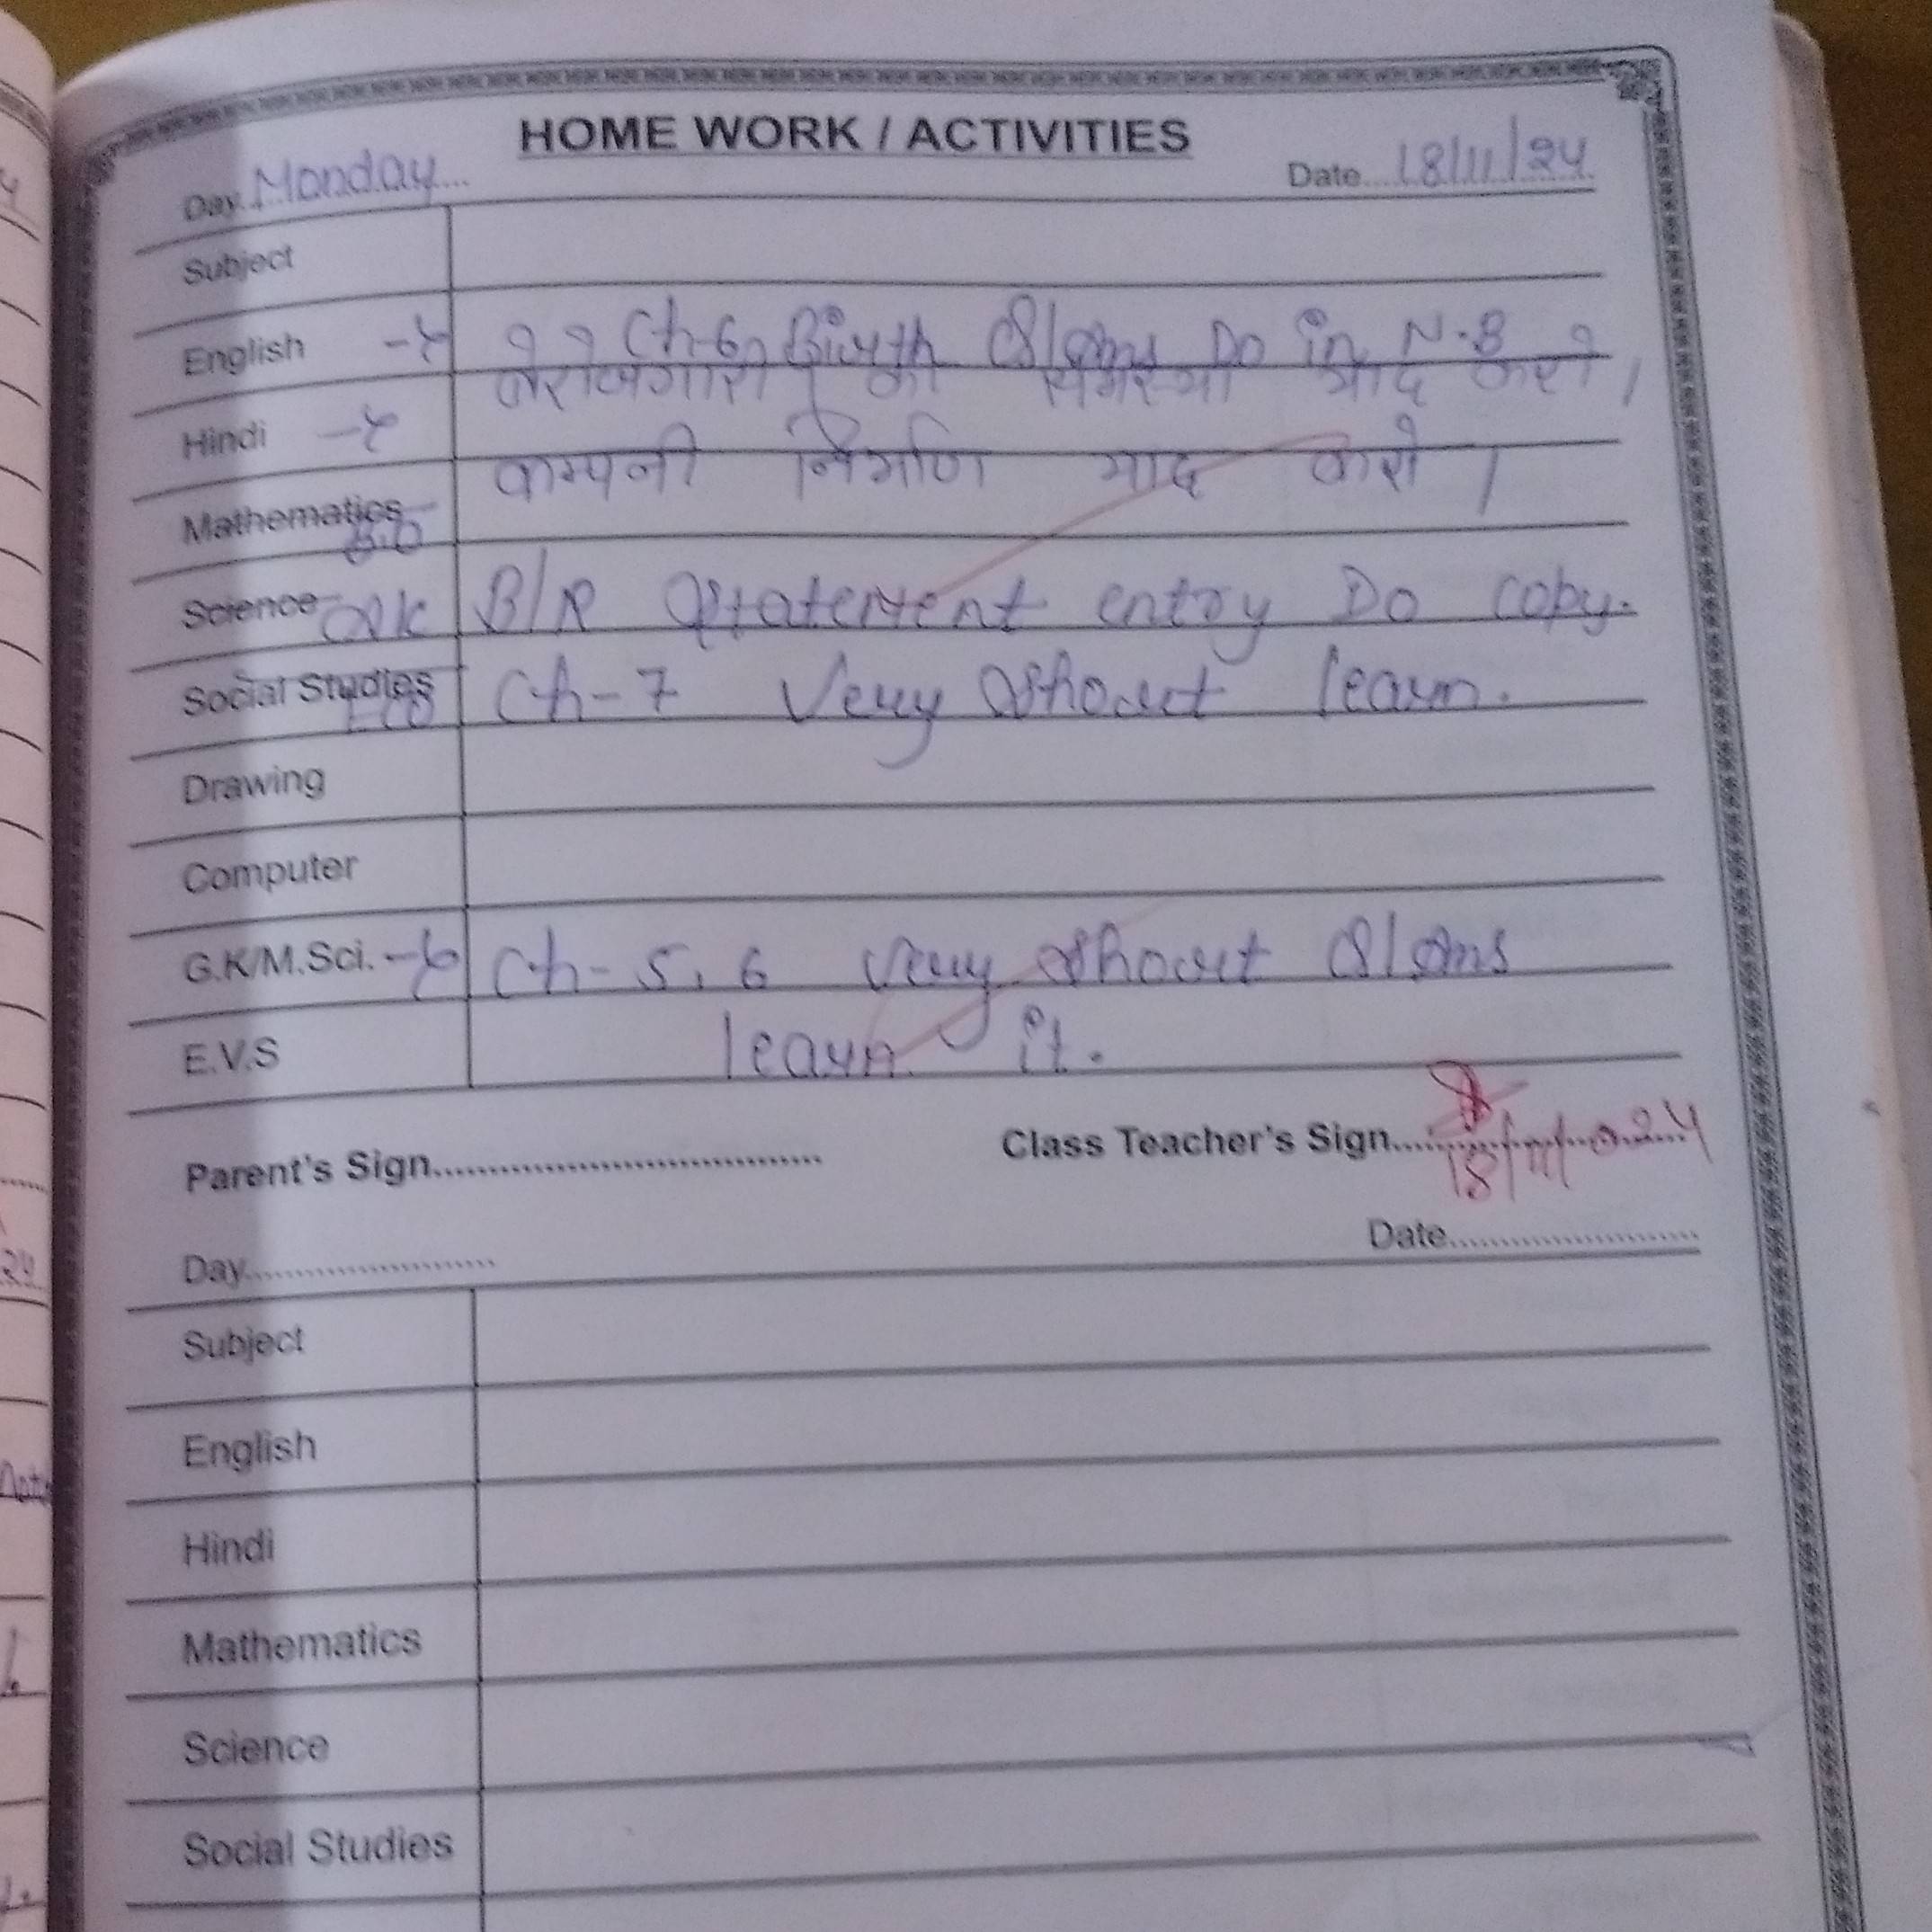 HOME WORK / ACTIVITIES
Day Monday Date 18/11/24
Subject
English Ch-6 Birth Q/Ans Do in N.B
Hindi बेरोजगारी की समस्या याद करो।
कम्पनी निर्माण याद करो।
Mathematics
Science B/R Statement entry Do copy.
Social Studies Eco Ch-7 Very short learn.
Drawing
Computer
G.K/M.Sci. Ch-5, 6 Very short Q/Ans
E.V.S learn it.
Parent's Sign Class Teacher's Sign
Day Date
Subject
English
Hindi
Mathematics
Science
Social Studies